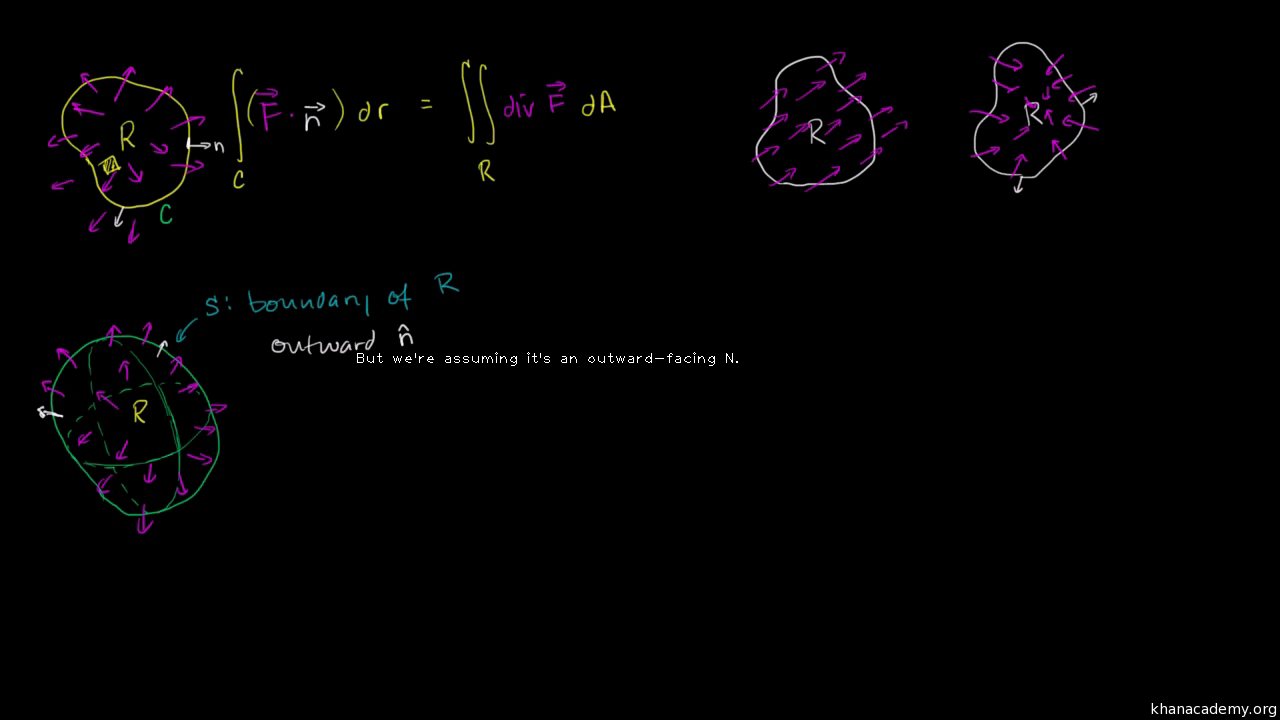 R
n
C
∫_C (F⃗ · n⃗) dr = ∬_R div F⃗ dA
R
R
S: boundary of R
outward n̂
But we're assuming it's an outward-facing N.
R
khanacademy.org